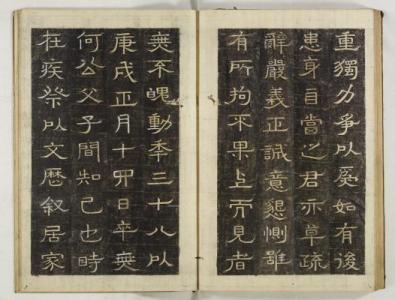 重獨力爭以爲如有後
患身自當之君亦草疏
辭嚴義正誠意懇惻雖
有所拘不果上而見者
無不魄動年三十八以
庚戌正月十四日卒無
何公父子間知己也時
在疾祭以文曆叙居家